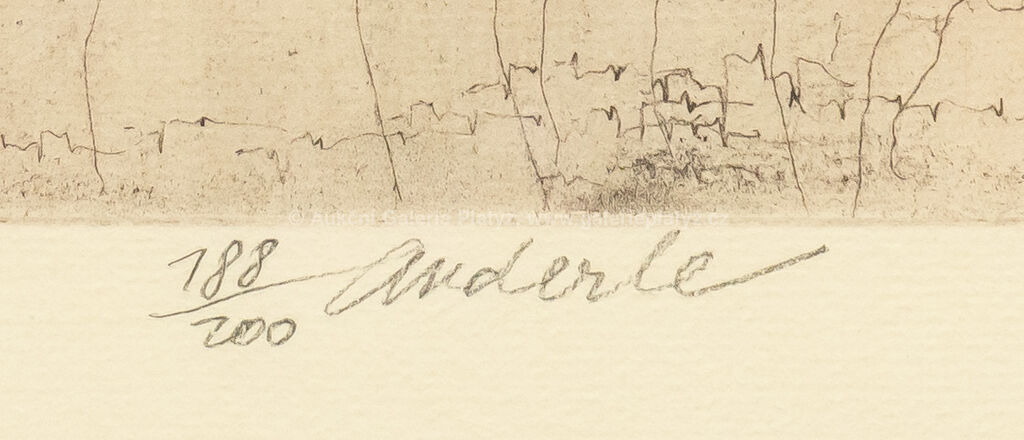 © Aukční Galerie Platýz, www.galerieplatyz.cz
188/200 Anderle